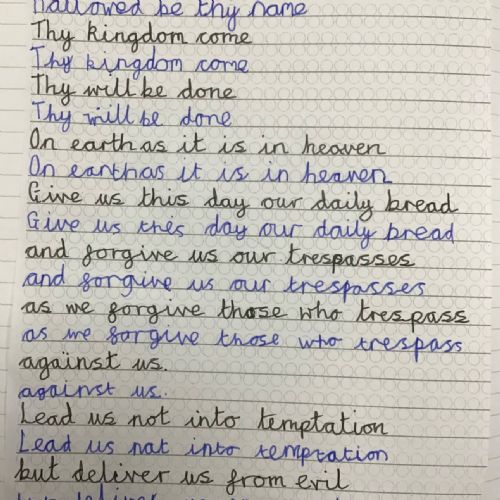 hallowed be thy name
Thy kingdom come
Thy kingdom come
Thy will be done
Thy will be done
On earth as it is in heaven
On earth as it is in heaven
Give us this day our daily bread
Give us this day our daily bread
and forgive us our trespasses
and forgive us our trespasses
as we forgive those who trespass
as we forgive those who trespass
against us.
against us.
Lead us not into temptation
Lead us not into temptation
but deliver us from evil
but deliver us from evil